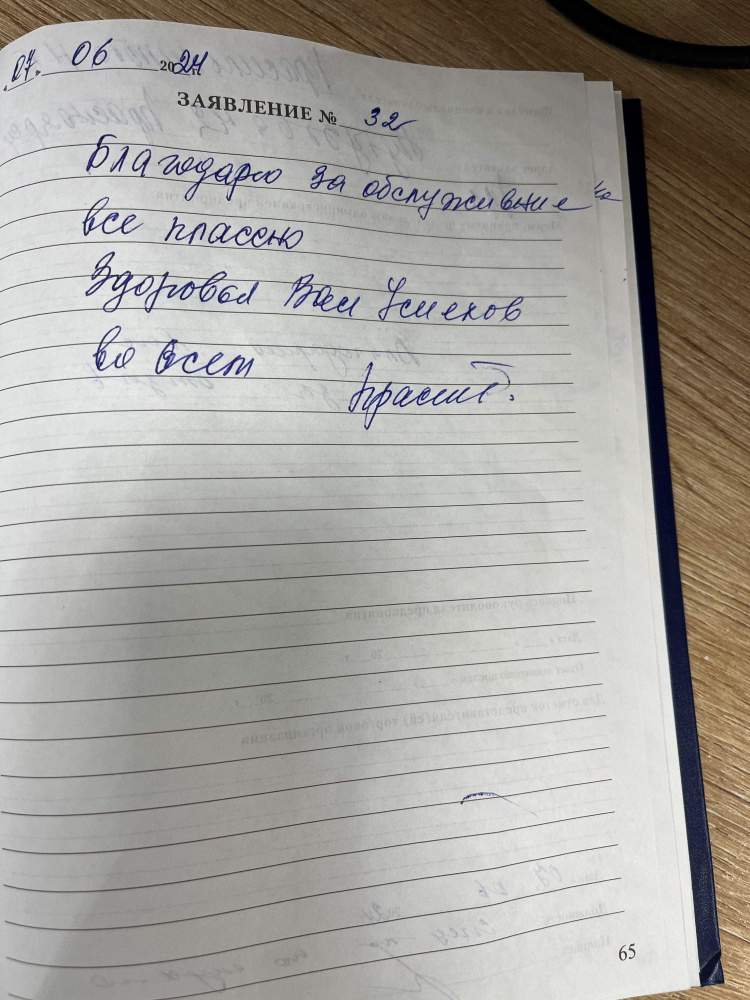 07. 06 2024
ЗАЯВЛЕНИЕ № 32
Благодарю за обслуживание
все классно
Здоровья Вам Успехов
во всем
65